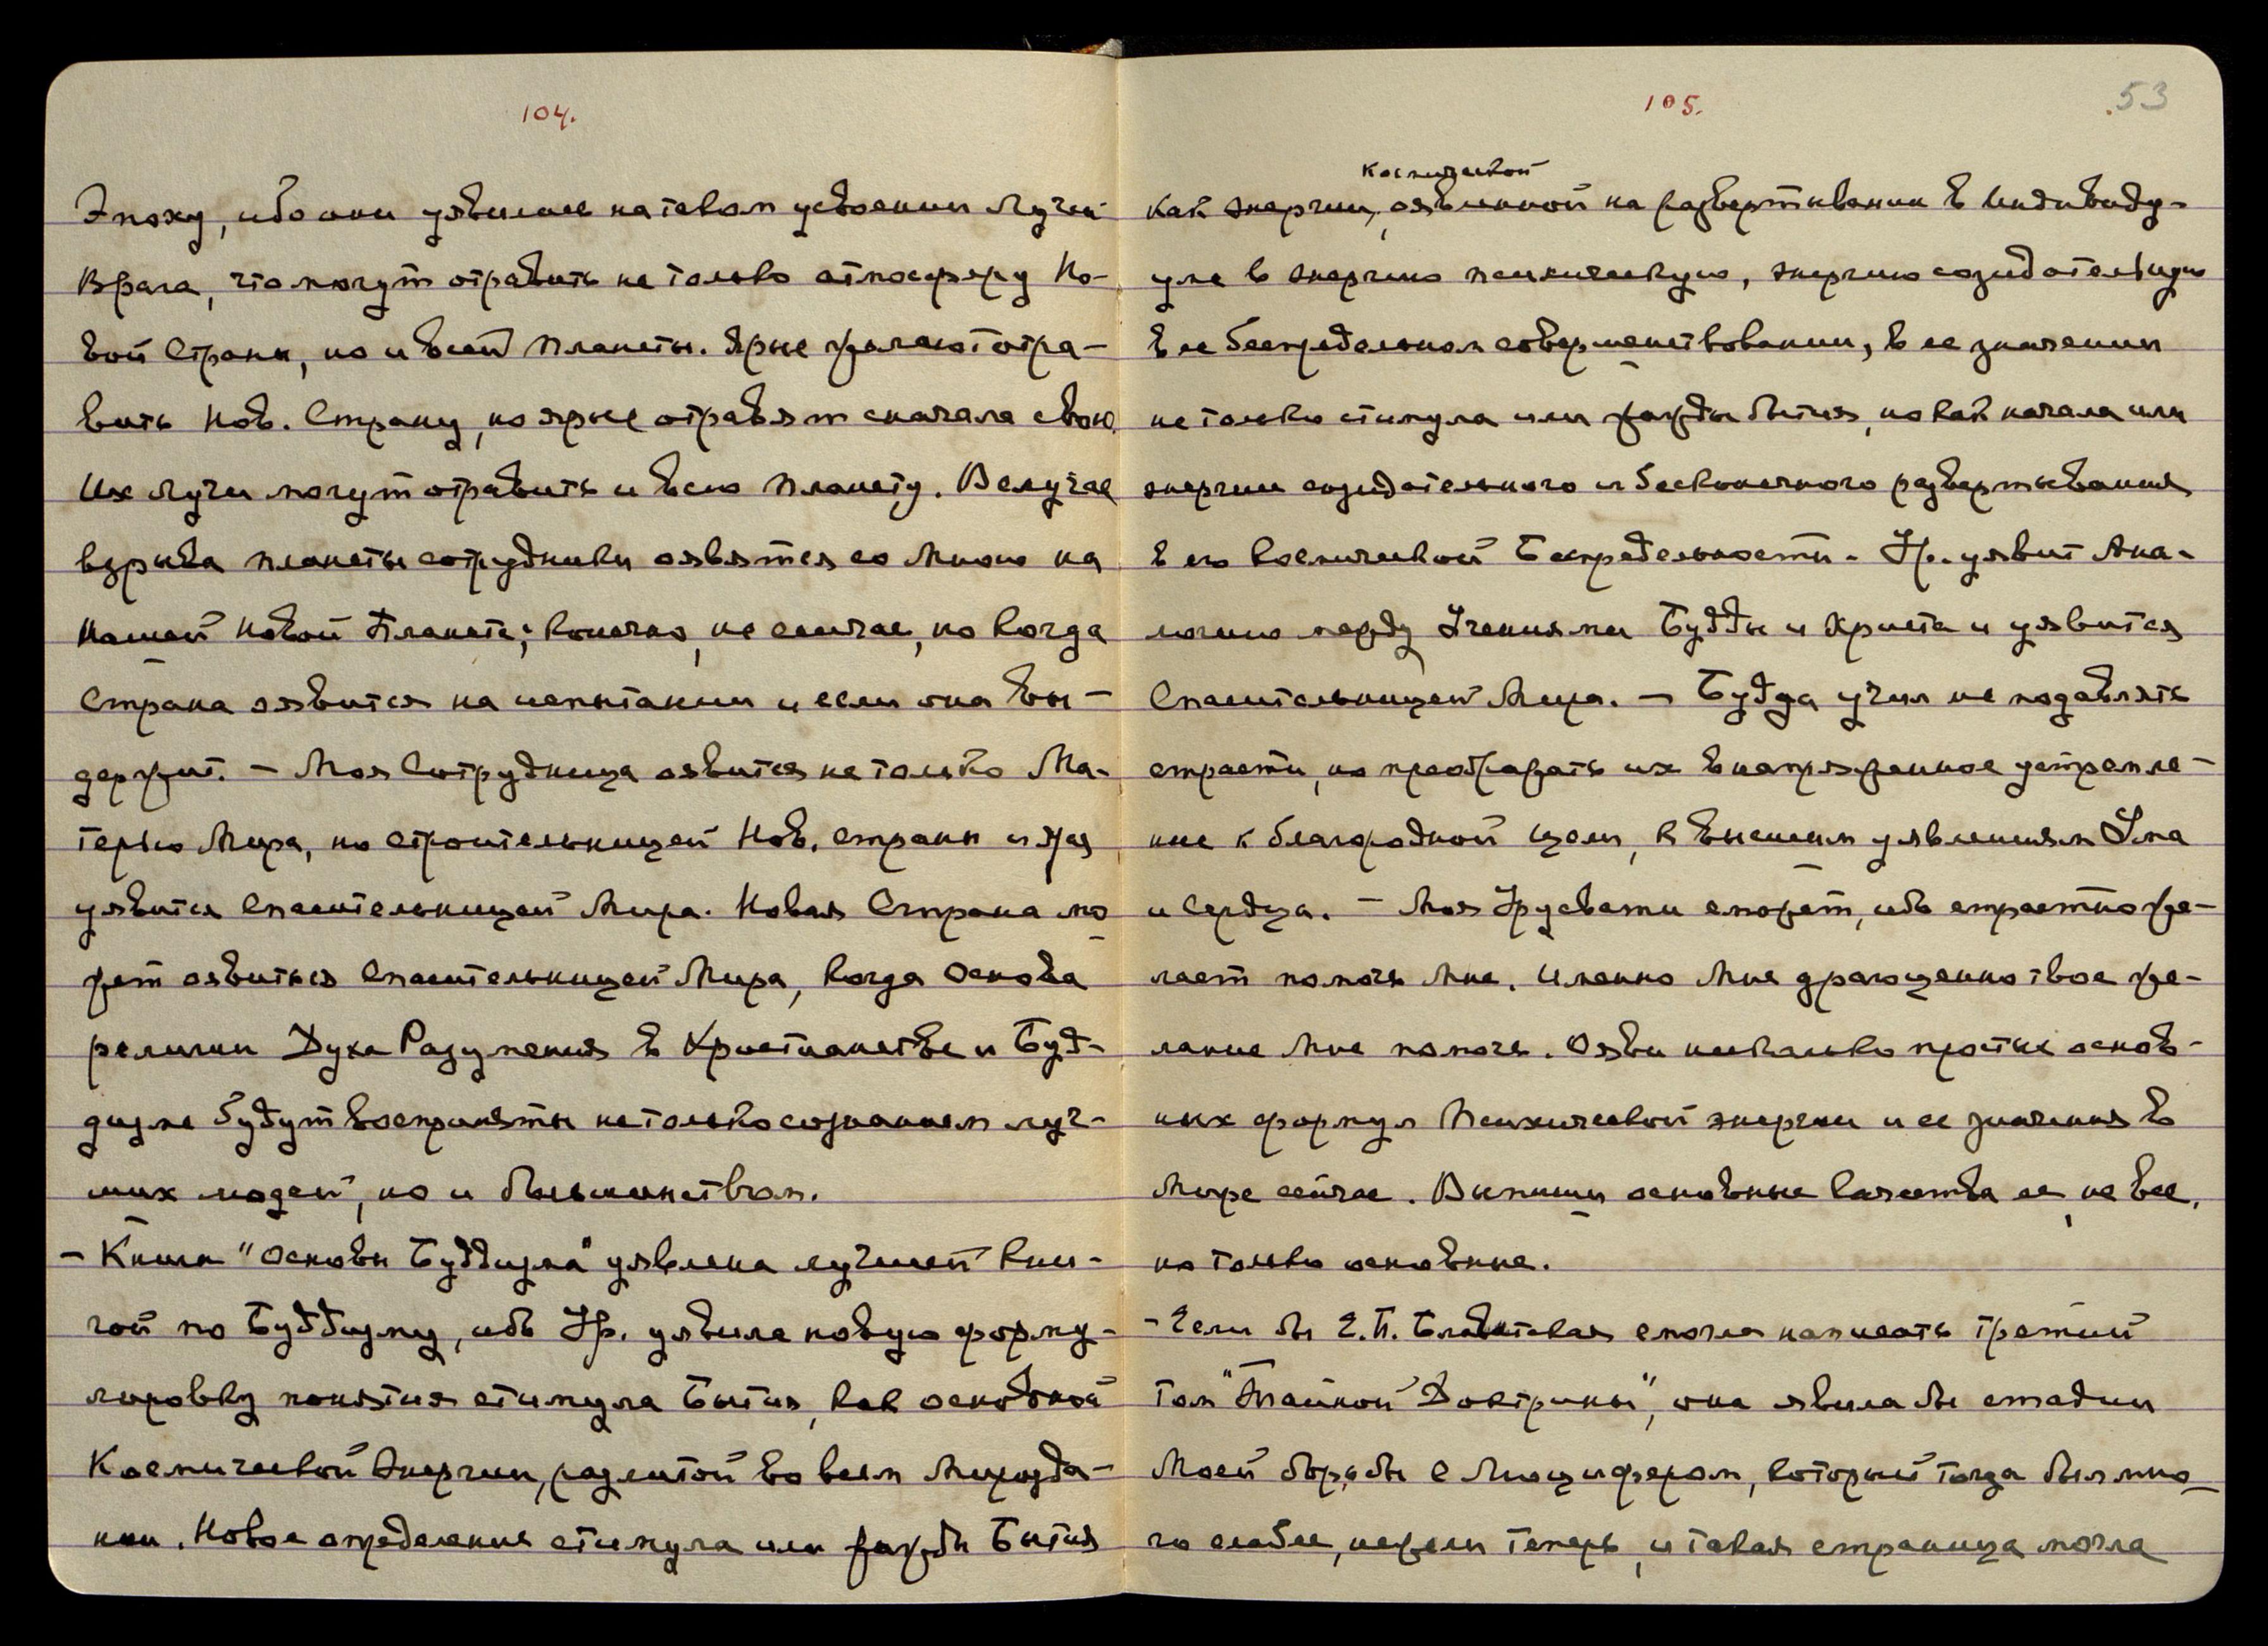 104.
Эпоху, ибо они уявились на таком усвоении Лучей
Врага, что могут отравить не только атмосферу Но-
вой Страны, но и всей Планеты. Ярые желают отра-
вить Нов. Страну, но ярые отравят сначала свою.
Их лучи могут отравить и всю Планету. В случае
взрыва планеты сотрудники оявятся со Мною на
Нашей Новой Планете; конечно, не сейчас, но когда
Страна оявится на испытании и если она вы-
держит. – Моя Сотрудница оявится не только Ма-
терью Мира, но строительницей Нов. страны и яра
уявится Спасительницей Мира. Новая Страна мо
жет оявиться Спасительницей Мира, когда Основа
религии Духа Разумения в Христианстве и Буд-
дизме будут восприняты не только сознанием луч-
ших людей, но и большинством.
– Книга "Основы Буддизма" уявлена лучшей кни-
гой по Буддизму, ибо Ур. уявила новую форму-
лировку понятия стимула Бытия, как основной
Космической Энергии, разлитой во всем Мирозда-
нии. Новое определение стимула или жажды Бытия
105.
53
Космической
как энергии, оявленной на развертывании в Индивиду-
уме в энергию психическую, энергию созидательную
в ее беспредельном совершенствовании, в ее значении
не только стимула или жажды бытия, но как начала или
энергии созидательного и бесконечного развертывания
в его космической Беспредельности. Ур. уявит Ана-
логию между Учениями Будды и Христа и уявится
Спасительницей Мира. – Будда учил не подавлять
страсти, но преображать их в напряженное устремле-
ние к благородной цели, к высшим уявлениям Ума
и Сердца. – Моя Урусвати сможет, ибо страстно же-
лает помочь Мне. Именно Мне драгоценно твое же-
лание Мне помочь. Ояви несколько простых основ-
ных формул Психической энергии и ее значения в
Мире сейчас. Выпиши основные качества ее, не все,
но только основные.
– Если бы Е.П. Блаватская смогла написать третий
том "Тайной Доктрины", она явила бы стадии
Моей борьбы с Люцифером, который тогда был мно
го слабее, нежели теперь, и такая страница могла